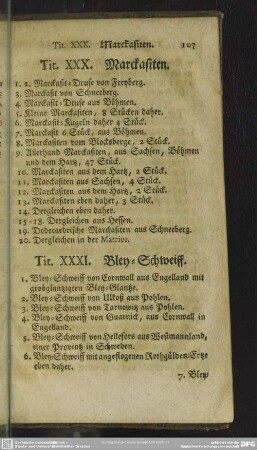 Tit. XXX. Marckasiten. 107
Tit. XXX. Marckasiten.
1. 2. Marckasit-Druse von Freyberg.
3. Marckasit von Schneeberg.
4. Marckasit-Druse aus Böhmen.
5. Kleine Marckasiten, 8 Stücken daher.
6. Marckasit-Kugeln daher 4 Stück.
7. Marckasit 6 Stück, aus Böhmen.
8. Marckasiten vom Blocksberge, 2 Stück.
9. Allerhand Marckasiten, aus Sachsen, Böhmen
und dem Hartz, 47 Stück.
10. Marckasiten aus dem Hartz, 2 Stück.
11. Marckasiten aus Sachsen, 4 Stück.
12. Marckasiten aus dem Hartz, 2 Stück.
13. Marckasiten eben daher, 3 Stück.
14. Dergleichen eben daher.
15-18. Dergleichen aus Hessen.
19. Dodecaedrische Marckasiten aus Schneeberg.
20. Dergleichen in der Matrice.
Tit. XXXI. Bley-Schweiff.
1. Bley-Schweiff von Cornwall aus Engelland mit
grobglantzigten Bley-Glantze.
2. Bley-Schweiff von Ilkoß aus Pohlen.
3. Bley-Schweiff von Tarnowitz aus Pohlen.
4. Bley-Schweiff von Guarnick, aus Cornwall in
Engelland.
5. Bley-Schweiff von Hellefors aus Westmannland,
einer Provintz in Schweden.
6. Bley-Schweiff mit angeflogenen Rothgülden-Ertze
eben daher.
7. Bley